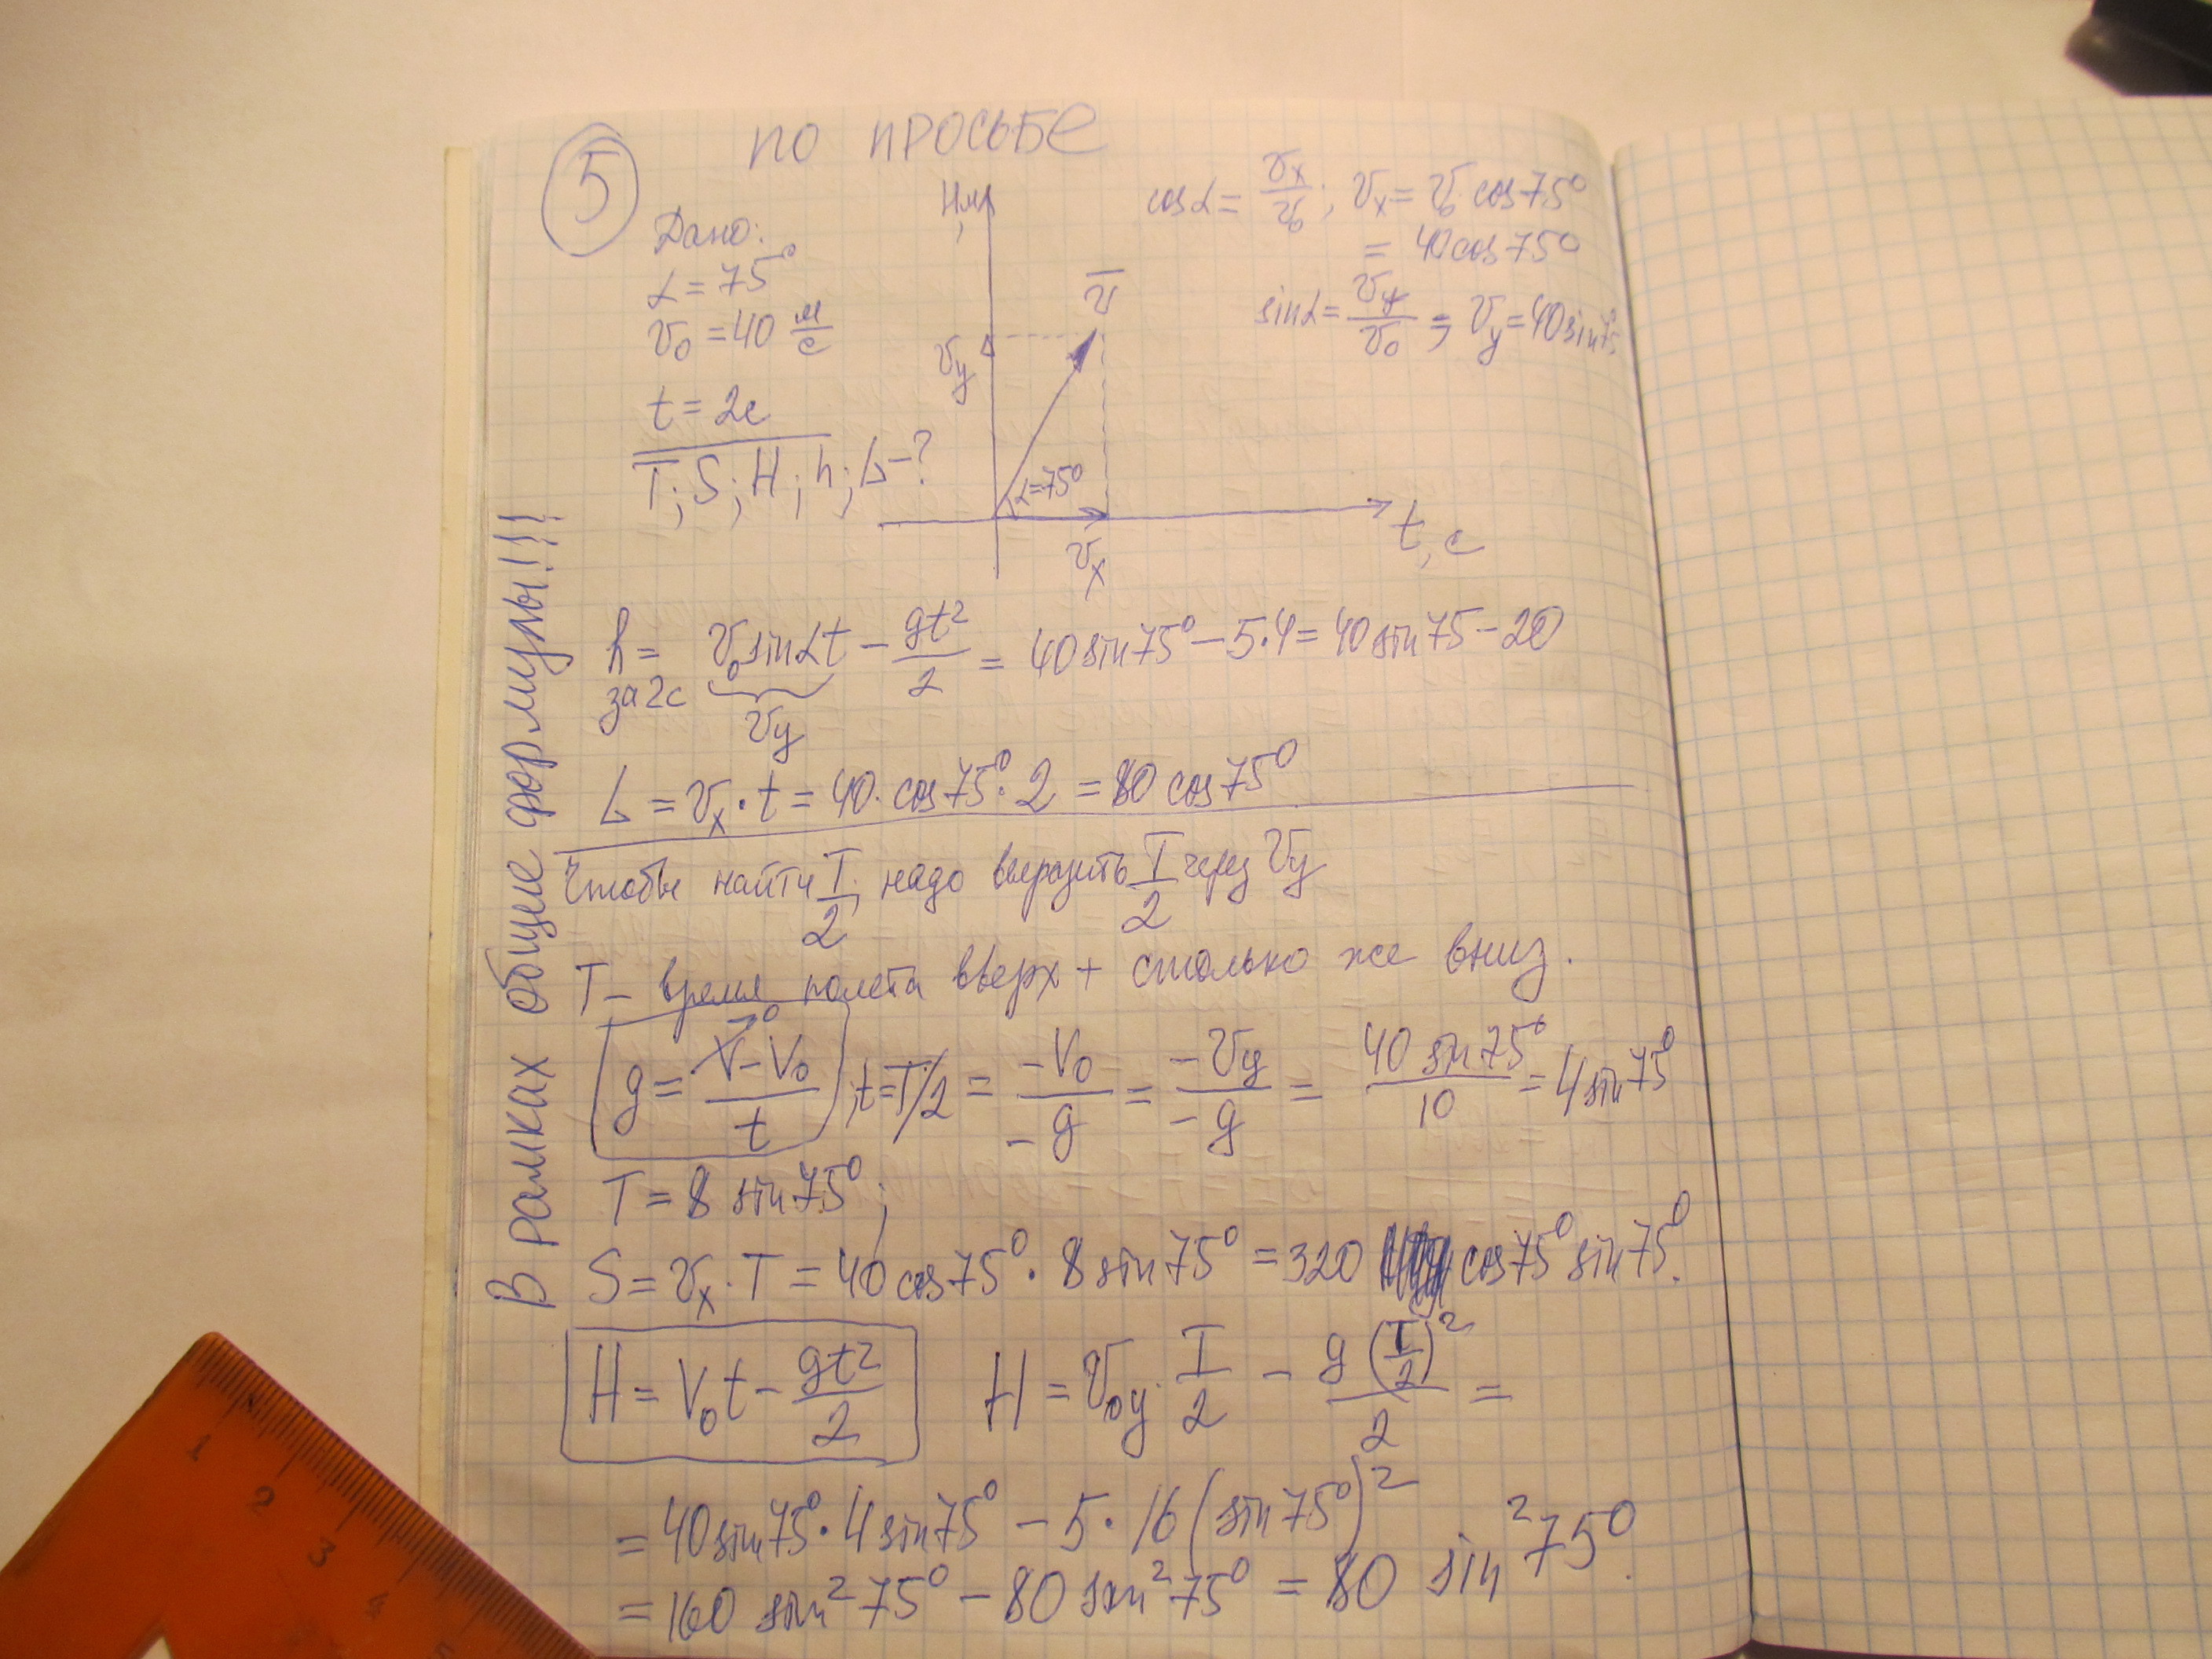 5
ПО ПРОСЬБЕ
Дано:
α = 75°
v₀ = 40 м/с
t = 2с
T; S; H; h; L – ?
H, м
v̄
v_y
α=75°
v_x
t, с
cosα = v_x/v₀; v_x = v₀ cos75°
= 40cos75°
sinα = v_y/v₀ =; v_y = 40sin75
В рамках общие формулы!!!!
h = v₀sinαt – gt²/2 = 40sin75° – 5·4 = 40sin75 – 20
за 2с
v_y
L = v_x · t = 40 · cos75° · 2 = 80 cos75°
Чтобы найти T/2, надо выразить T/2 через v_y
T – время полета вверх + столько же вниз.
0
g = (V – V₀)/t; t = T/2 = –V₀/–g = –v_y/–g = 40 sin75°/10 = 4sin75°
T = 8 sin75°;
S = v_x · T = 40cos75° · 8sin75° = 320 cos75° sin75°.
H = V₀t – gt²/2
H = v₀y · T/2 – g(T/2)²/2 =
= 40sin75° · 4sin75° – 5 · 16(sin75°)²
= 160 sin²75° – 80 sin²75° = 80 sin²75°.
1
2
3
4
5